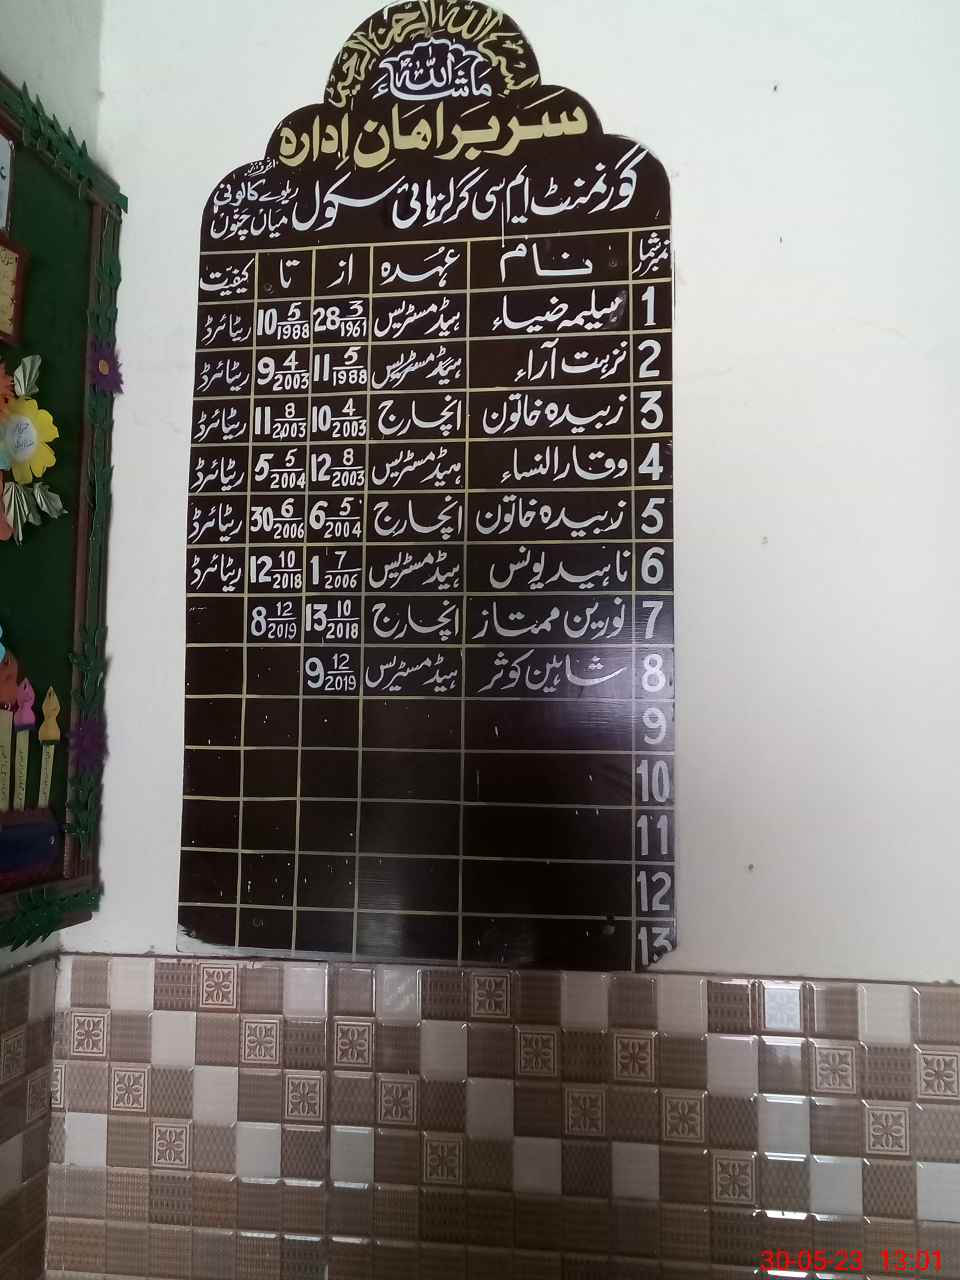 بسم اللہ الرحمن الرحیم
ماشاء اللہ
سربراهانِ اِداره
گورنمنٹ ایم سی گرلز ہائی سکول ریلوے کالونی میاں چنوں
نمبر شمار نام عہدہ از تا کیفیت
1 سلیمہ ضیاء ہیڈمسٹریس 28 3/1961 10 5/1988 ریٹائرڈ
2 نزہت آراء ہیڈمسٹریس 11 5/1988 9 4/2003 ریٹائرڈ
3 زبیدہ خاتون انچارج 10 4/2003 11 8/2003 ریٹائرڈ
4 وقار النساء ہیڈمسٹریس 12 8/2003 5 5/2004 ریٹائرڈ
5 زبیدہ خاتون انچارج 6 5/2004 30 6/2006 ریٹائرڈ
6 ناہید یونس ہیڈمسٹریس 1 7/2006 12 10/2018 ریٹائرڈ
7 نورین ممتاز انچارج 13 10/2018 8 12/2019
8 شاہین کوثر ہیڈمسٹریس 9 12/2019
9
10
11
12
13
30-05-23 13:01